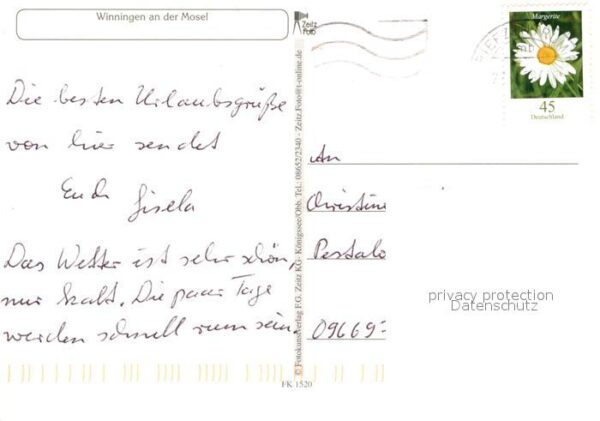 Winningen an der Mosel
Zeitz
Foto
Margerite
45
Deutschland
Die besten Urlaubsgrüße
von hier sendet
Euch
Gisela
Das Wetter ist sehr schön,
nur kalt. Die paar Tage
werden schnell rum sein.
© Fotokunstverlag F.G. Zeitz KG - Königssee/Obb. Tel.: 08652/2340 - Zeitz.Foto@t-online.de
An
Christine
Pestalo
09669
privacy protection
Datenschutz
FK 1520